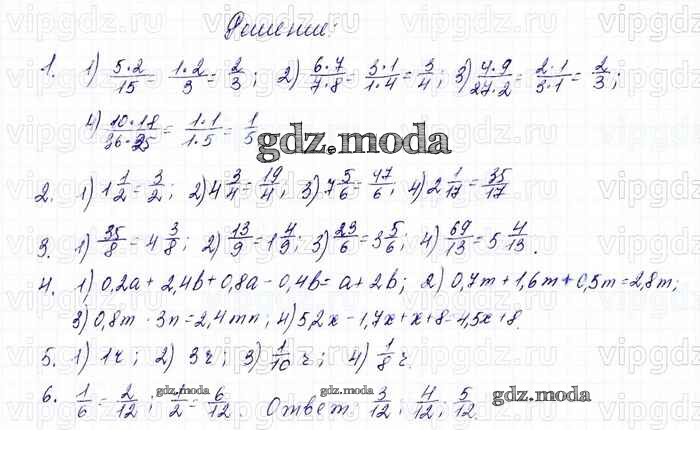 Решение:
1. 1) 5·2/15 = 1·2/3 = 2/3; 2) 6·7/7·8 = 3·1/1·4 = 3/4; 3) 4·9/27·2 = 2·1/3·1 = 2/3;
4) 10·18/36·25 = 1·1/1·5 = 1/5
gdz.moda
2. 1) 1 1/2 = 3/2; 2) 4 3/4 = 19/4; 3) 7 5/6 = 47/6; 4) 2 1/17 = 35/17
3. 1) 35/8 = 4 3/8; 2) 13/9 = 1 4/9; 3) 23/6 = 3 5/6; 4) 69/13 = 5 4/13.
4. 1) 0,2a + 2,4b + 0,8a - 0,4b = a + 2b; 2) 0,7m + 1,6m + 0,5m = 2,8m;
3) 0,8m · 3n = 2,4mn; 4) 5,2x - 1,7x + x + 8 = 4,5x + 8.
5. 1) 1ч; 2) 3ч; 3) 1/10 ч; 4) 1/8 ч.
6. 1/6 = 2/12; 1/2 = 6/12. Ответ: 3/12; 4/12; 5/12.
gdz.moda gdz.moda gdz.moda